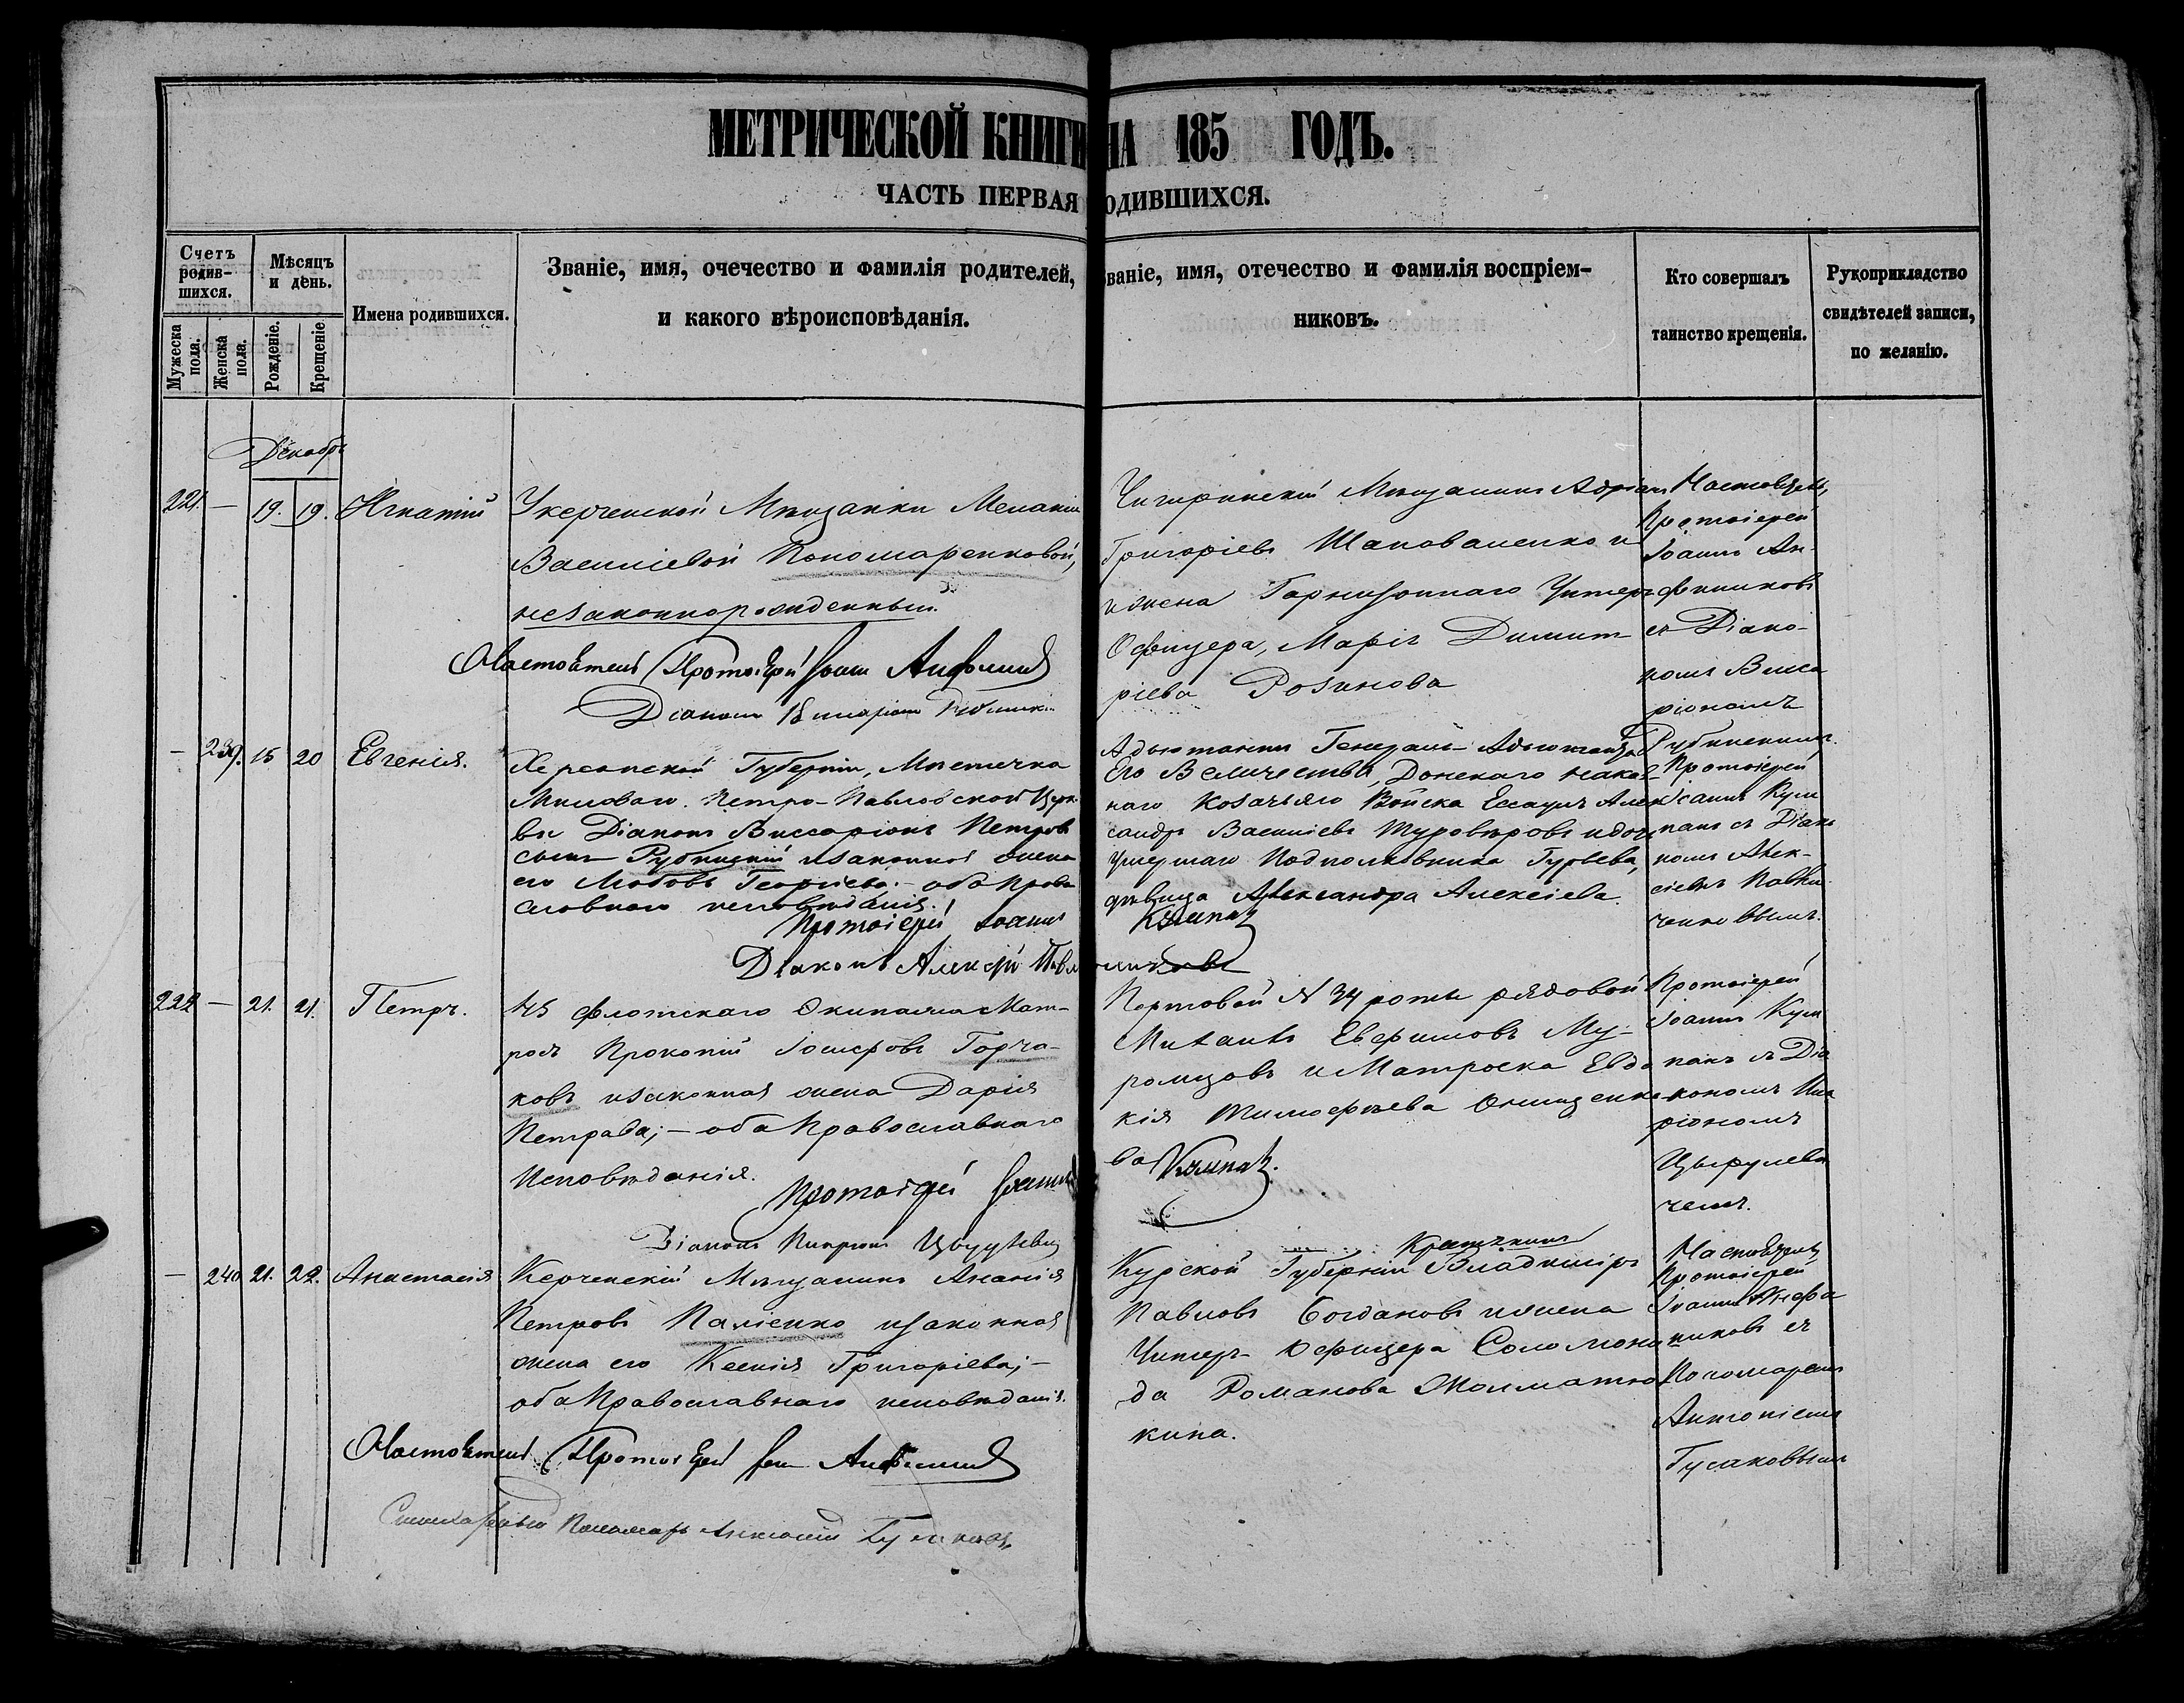 МЕТРИЧЕСКОЙ КНИГИ НА 185 ГОДЪ.
ЧАСТЬ ПЕРВАЯ ОДИВШИХСЯ.
Счетъ родив-шихся.
Мужеска пола.
Женска пола.
Мѣсяцъ и день.
Рожденіе.
Крещеніе.
Имена родившихся.
Званіе, имя, очечество и фамилія родителей,
и какого вѣроисповѣданія.
Званіе, имя, отечество и фамилія воспріем-
никовъ.
Кто совершалъ
таинство крещенія.
Рукоприкладство
свидѣтелей записи,
по желанію.
Декабрь
221. — 19. 19. Игнатій
У керченской Мѣщанки Меланіи
Василіевой Пономаренковой,
незаконнорожденный.
Настоятель Протоіерей Іоаннъ
Діаконъ Виссаріонъ
Чигиринскій Мѣщанинъ Адріанъ
Григоріевъ Шаповаленко и
жена Гарнизоннаго Унтеръ
Офицера, Марія Димит
ріева Розинова
Настоятель
Протоіерей
Іоаннъ Ан-
фиников
съ Діако-
номъ Висса
ріономъ
Рубинскимъ.
— 239. 15 20 Евгенія.
Херсонской Губерніи, Мѣстечка
Милового. Петро-Павловской Церк
ви Діаконъ Виссаріонъ Петровъ
сынъ и законная жена
его Любовь Георгіева; — оба Право
славнаго исповѣданія.
Протоіерей Іоаннъ Кумпан
Діаконъ Алексѣй
Адъютантъ Генералъ-Адъютанта
Его Величества, Донскаго наказ
наго Козачьяго Войска Есаулъ Алек
сандръ Василіевъ Туровѣровъ и дочь
умершаго Подполковника Гурьева,
дѣвица Александра Алексіева.
Протоіерей
Іоаннъ Кум
панъ съ Діако
номъ Алек-
сіемъ
222 — 21. 21. Петръ.
45 флотскаго Экипажа Мат-
росъ Прокопій Іосифовъ Горча-
ковъ и законная жена Дарія
Петрова; — оба Православнаго
Исповѣданія.
Протоіерей Іоаннъ Кумпан.
Діаконъ Иларіонъ
Портовой N 34 роты рядовой
Михаилъ Евфимовъ Му-
ромцовъ и Матроска Евдо
кія Тимофѣева Онищенко
ва
Протоіерей
Іоаннъ Кум
панъ съ Діа
кономъ Ила
ріономъ
Цыцулеви
чемъ.
— 240 21. 22. Анастасія
Керченскій Мѣщанинъ Ананія
Петровъ Паліенко и законная
жена его Ксенія Григоріева; —
оба Православнаго исповѣданія.
Настоятель Протоіерей
Пономарь Антоній Гусаковъ
Курской Губерніи Владиміръ
Павловъ Богдановъ и жена
Унтеръ-Офицера Соломони
да Романова Толмаче
кина.
Настоятель
Протоіерей
Іоаннъ Анфи
никовъ съ
Пономаремъ
Антоніемъ
Гусаковымъ